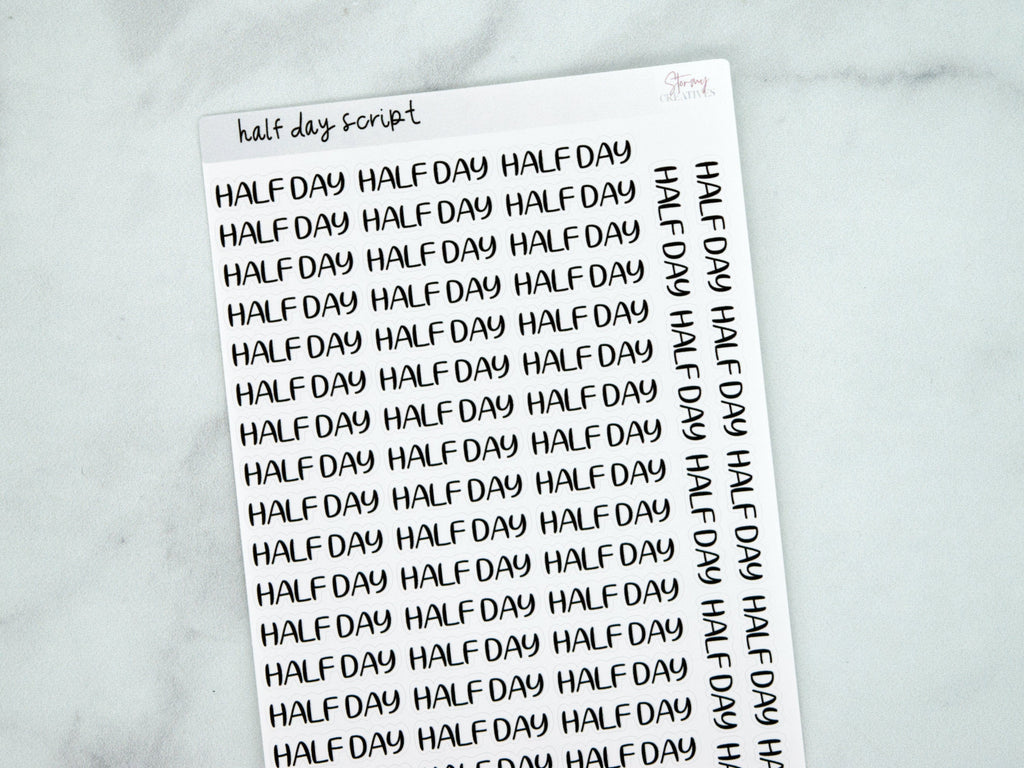 half day script
Stormy
CREATIVES
HALF DAY HALF DAY HALF DAY
HALF DAY HALF DAY HALF DAY
HALF DAY HALF DAY HALF DAY
HALF DAY HALF DAY HALF DAY
HALF DAY HALF DAY HALF DAY
HALF DAY HALF DAY HALF DAY
HALF DAY HALF DAY HALF DAY
HALF DAY HALF DAY HALF DAY
HALF DAY HALF DAY HALF DAY
HALF DAY HALF DAY HALF DAY
HALF DAY HALF DAY HALF DAY
HALF DAY HALF DAY HALF DAY
HALF DAY HALF DAY HALF DAY
HALF DAY HALF DAY HALF DAY
HALF DAY HALF DAY HALF DAY
HALF DAY HALF DAY
HALF DAY HALF DAY HALF DAY HALF DAY
HALF DAY HALF DAY HALF DAY HALF DAY